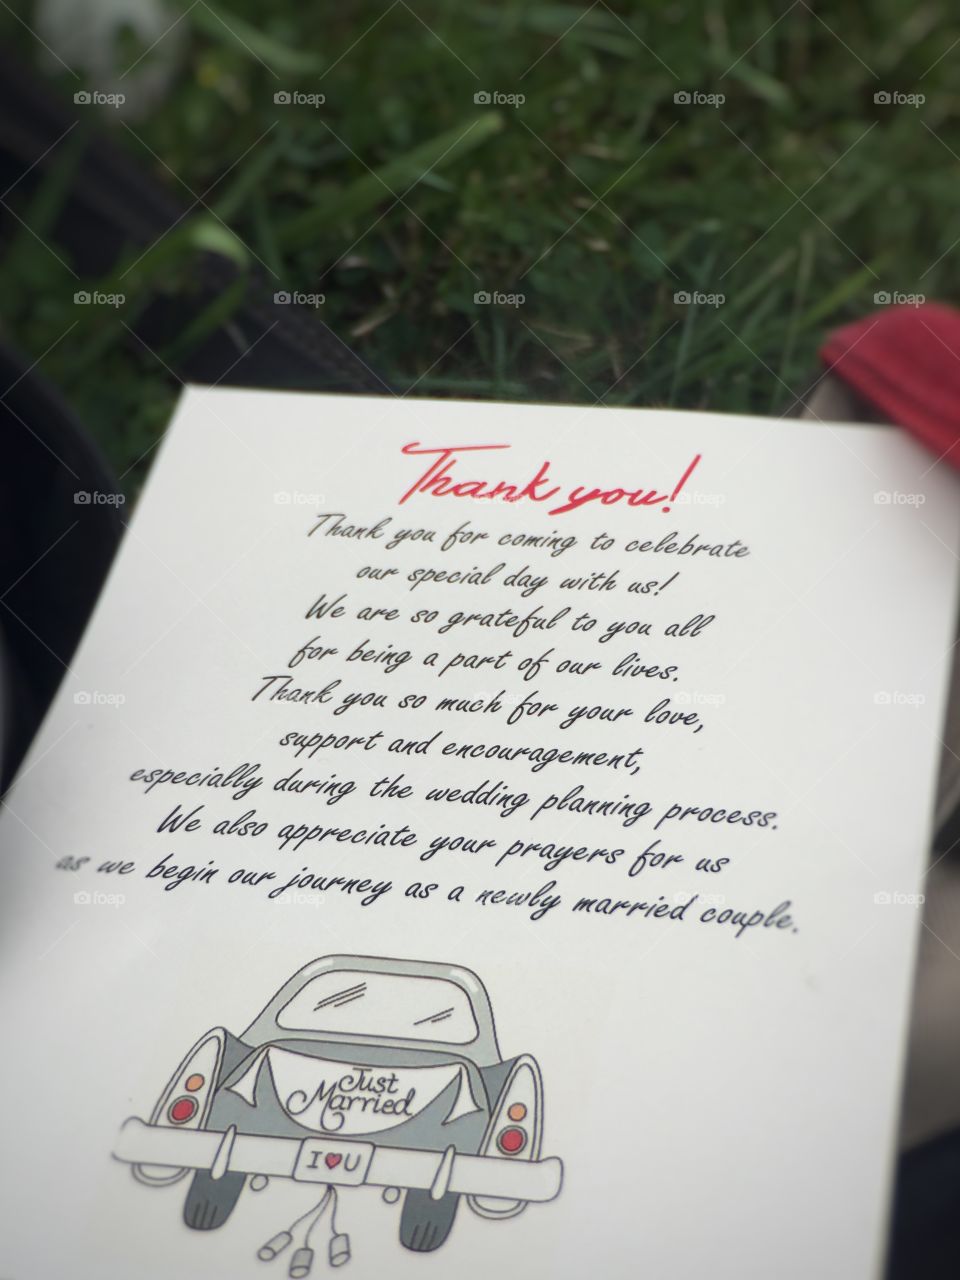 Thank you!
Thank you for coming to celebrate
our special day with us!
We are so grateful to you all
for being a part of our lives.
Thank you so much for your love,
support and encouragement,
especially during the wedding planning process.
We also appreciate your prayers for us
as we begin our journey as a newly married couple.
Just
Married
I ❤ U
foap foap foap foap foap
foap foap foap foap foap
foap foap foap foap foap
foap foap foap foap foap
foap foap foap foap foap